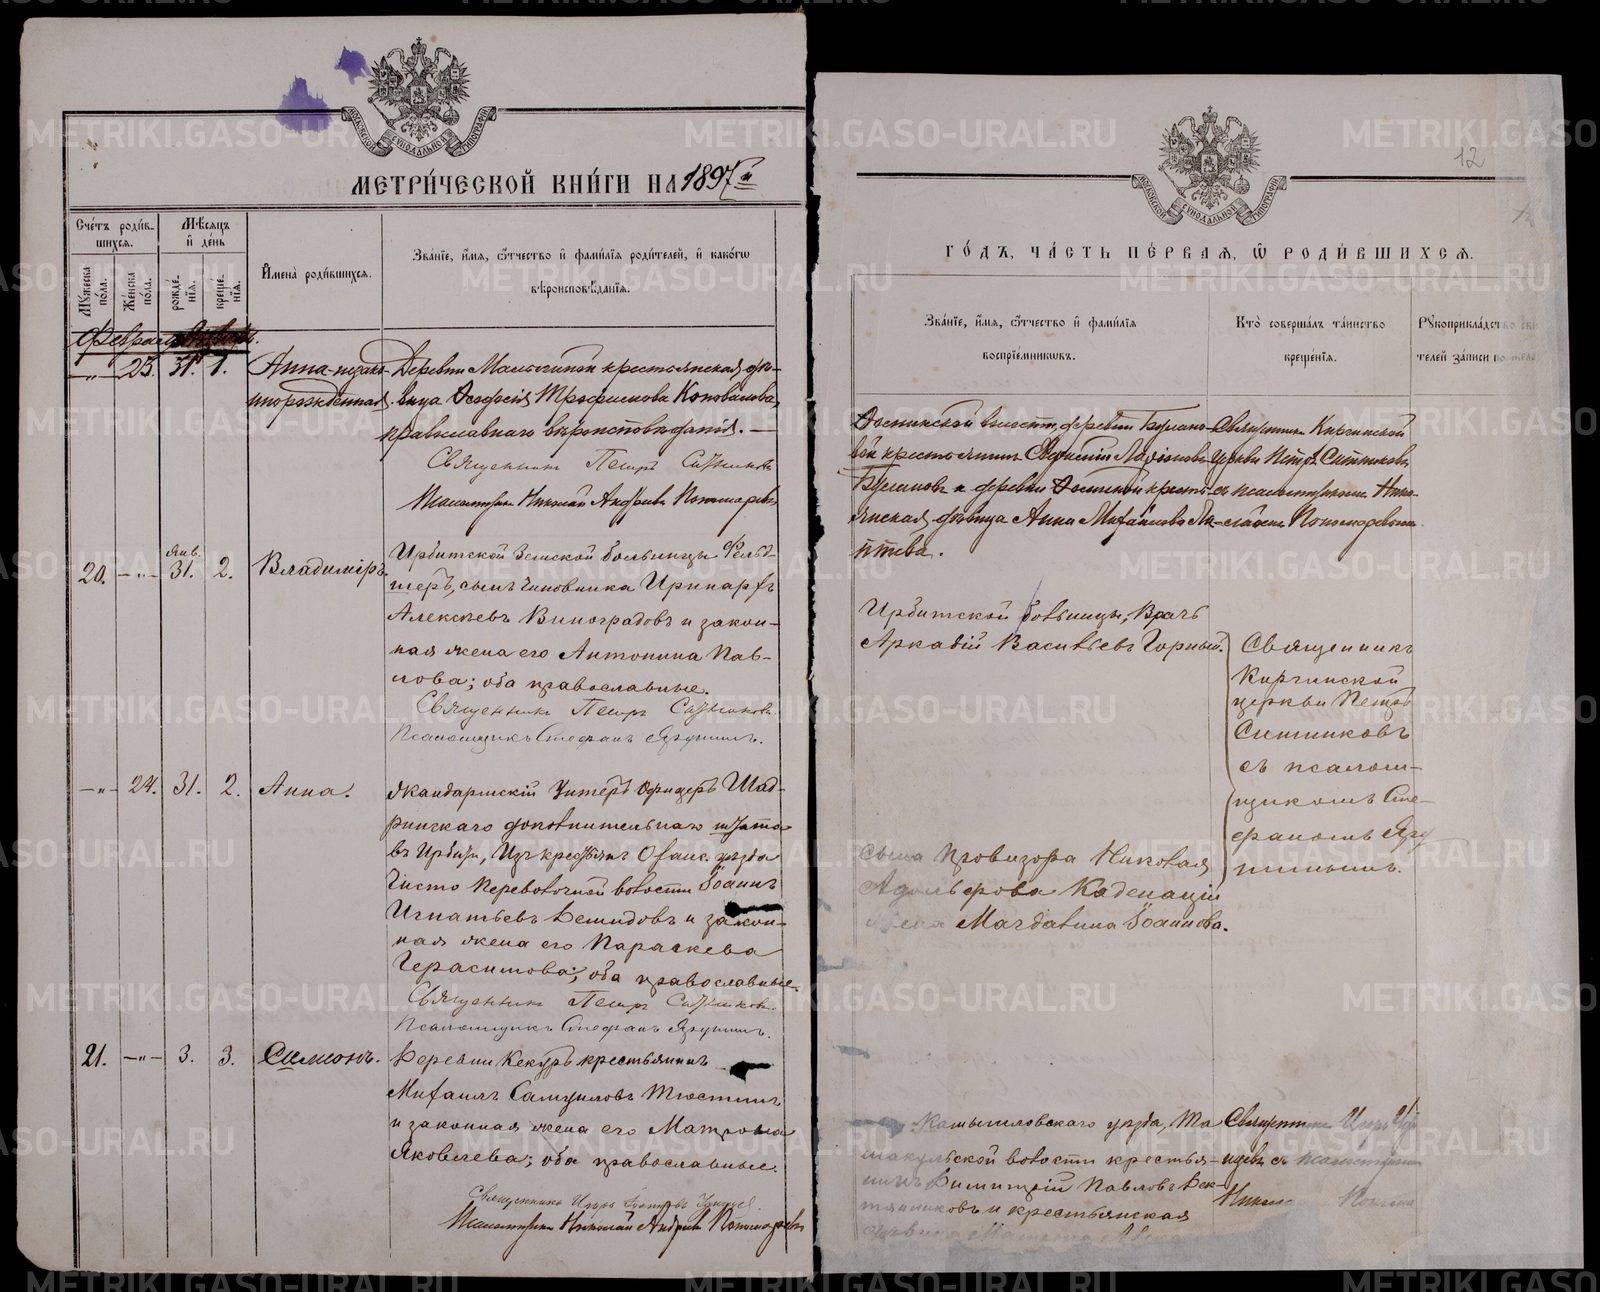 МЕТРИ́ЧЕСКОЙ КНИ́ГИ НА 1897 й
Счéтъ роди́в-
шихсѧ.
Мѣ́сѧцъ
и҆ дéнь
Мꙋ́жеска
пóла.
Жéнска
пóла.
рождé-
нїѧ.
крещé-
нїѧ.
И҆менà роди́вшихсѧ.
Звáнїе, и҆́мѧ, ѻ҆́тчество и҆ фами́лїѧ роди́телей, и҆ какóгѡ
вѣроисповѣ́данїѧ.
Февраль
-„- 23. 31. 1. Анна-незако-
ннорожденная.
Деревни Мальгиной крестьянская дѣ-
вица Феофисія Трофимова Коновалова,
православнаго вѣроисповѣданія.
Священникъ Петръ Ситниковъ
Псаломщикъ Николай Андреевъ Пономаревъ
янв.
20. -„- 31. 2. Владиміръ.
Ирбитской Земской больницы Фельд-
шеръ, сынъ чиновника Иринархъ
Алексѣевъ Виноградовъ и закон-
ная жена его Антонина Пав-
лова; оба православные.
Священникъ Петръ Ситниковъ.
Псаломщикъ Стефанъ Ягутинъ.
-„- 24. 31. 2. Анна.
Жандармскій Унтеръ Офицеръ Шад-
ринскаго дополнительнаго штата
въ Ирбити, Изъ крестьянъ Оханс. уѣзда
Чисто Переволочной волости Іоаннъ
Игнатьевъ Демидовъ и закон-
ная жена его Параскева
Герасимова; оба православные.
Священникъ Петръ Ситниковъ.
Псаломщикъ Стефанъ Ягутинъ.
21. -„- 3. 3. Симеонъ.
Деревни Кекуръ крестьянинъ
Михаилъ Самуиловъ Тюстинъ
и законная жена его Матрона
Яковлева; оба православные.
Священникъ
Псаломщикъ Николай Андреевъ Пономаревъ
12
ГÓДЪ, ЧÁСТЬ ПÉРВАѦ, Ѡ҆ РОДИ́ВШИХСѦ.
Звáнїе, и҆́мѧ, ѻ҆́тчество и҆ фами́лїѧ
воспрїéмникѡвъ.
Ктò совершáлъ тáинство
крещéнїѧ.
Рꙋкоприклáдство сви
телей зáписи по
волости, деревни Булано-
вой крестьянинъ Ларіоновъ
Булановъ и деревни крестья-
янская дѣвица Анна Михайлова Ла-
птева.
Священникъ Киргинской
церкви Петръ Ситниковъ
съ псаломщикомъ Нико-
лаемъ Пономаревымъ
Ирбитской больницы, Врачъ
Аркадій Васильевъ Горный.
Священникъ
Киргинской
церкви Петръ
Ситниковъ
съ псалом-
щикомъ Сте-
фаномъ Ягу
тинымъ.
сына Провизора Николая
Адольфова Каденацій
жена Магдалина Іоаннова.
Камышловскаго уѣзда, Та
шакульской волости крестья-
нинъ Димитрій Павловъ Бек-
тянниковъ и крестьянская
дѣвица
Священникъ
съ псаломщикомъ